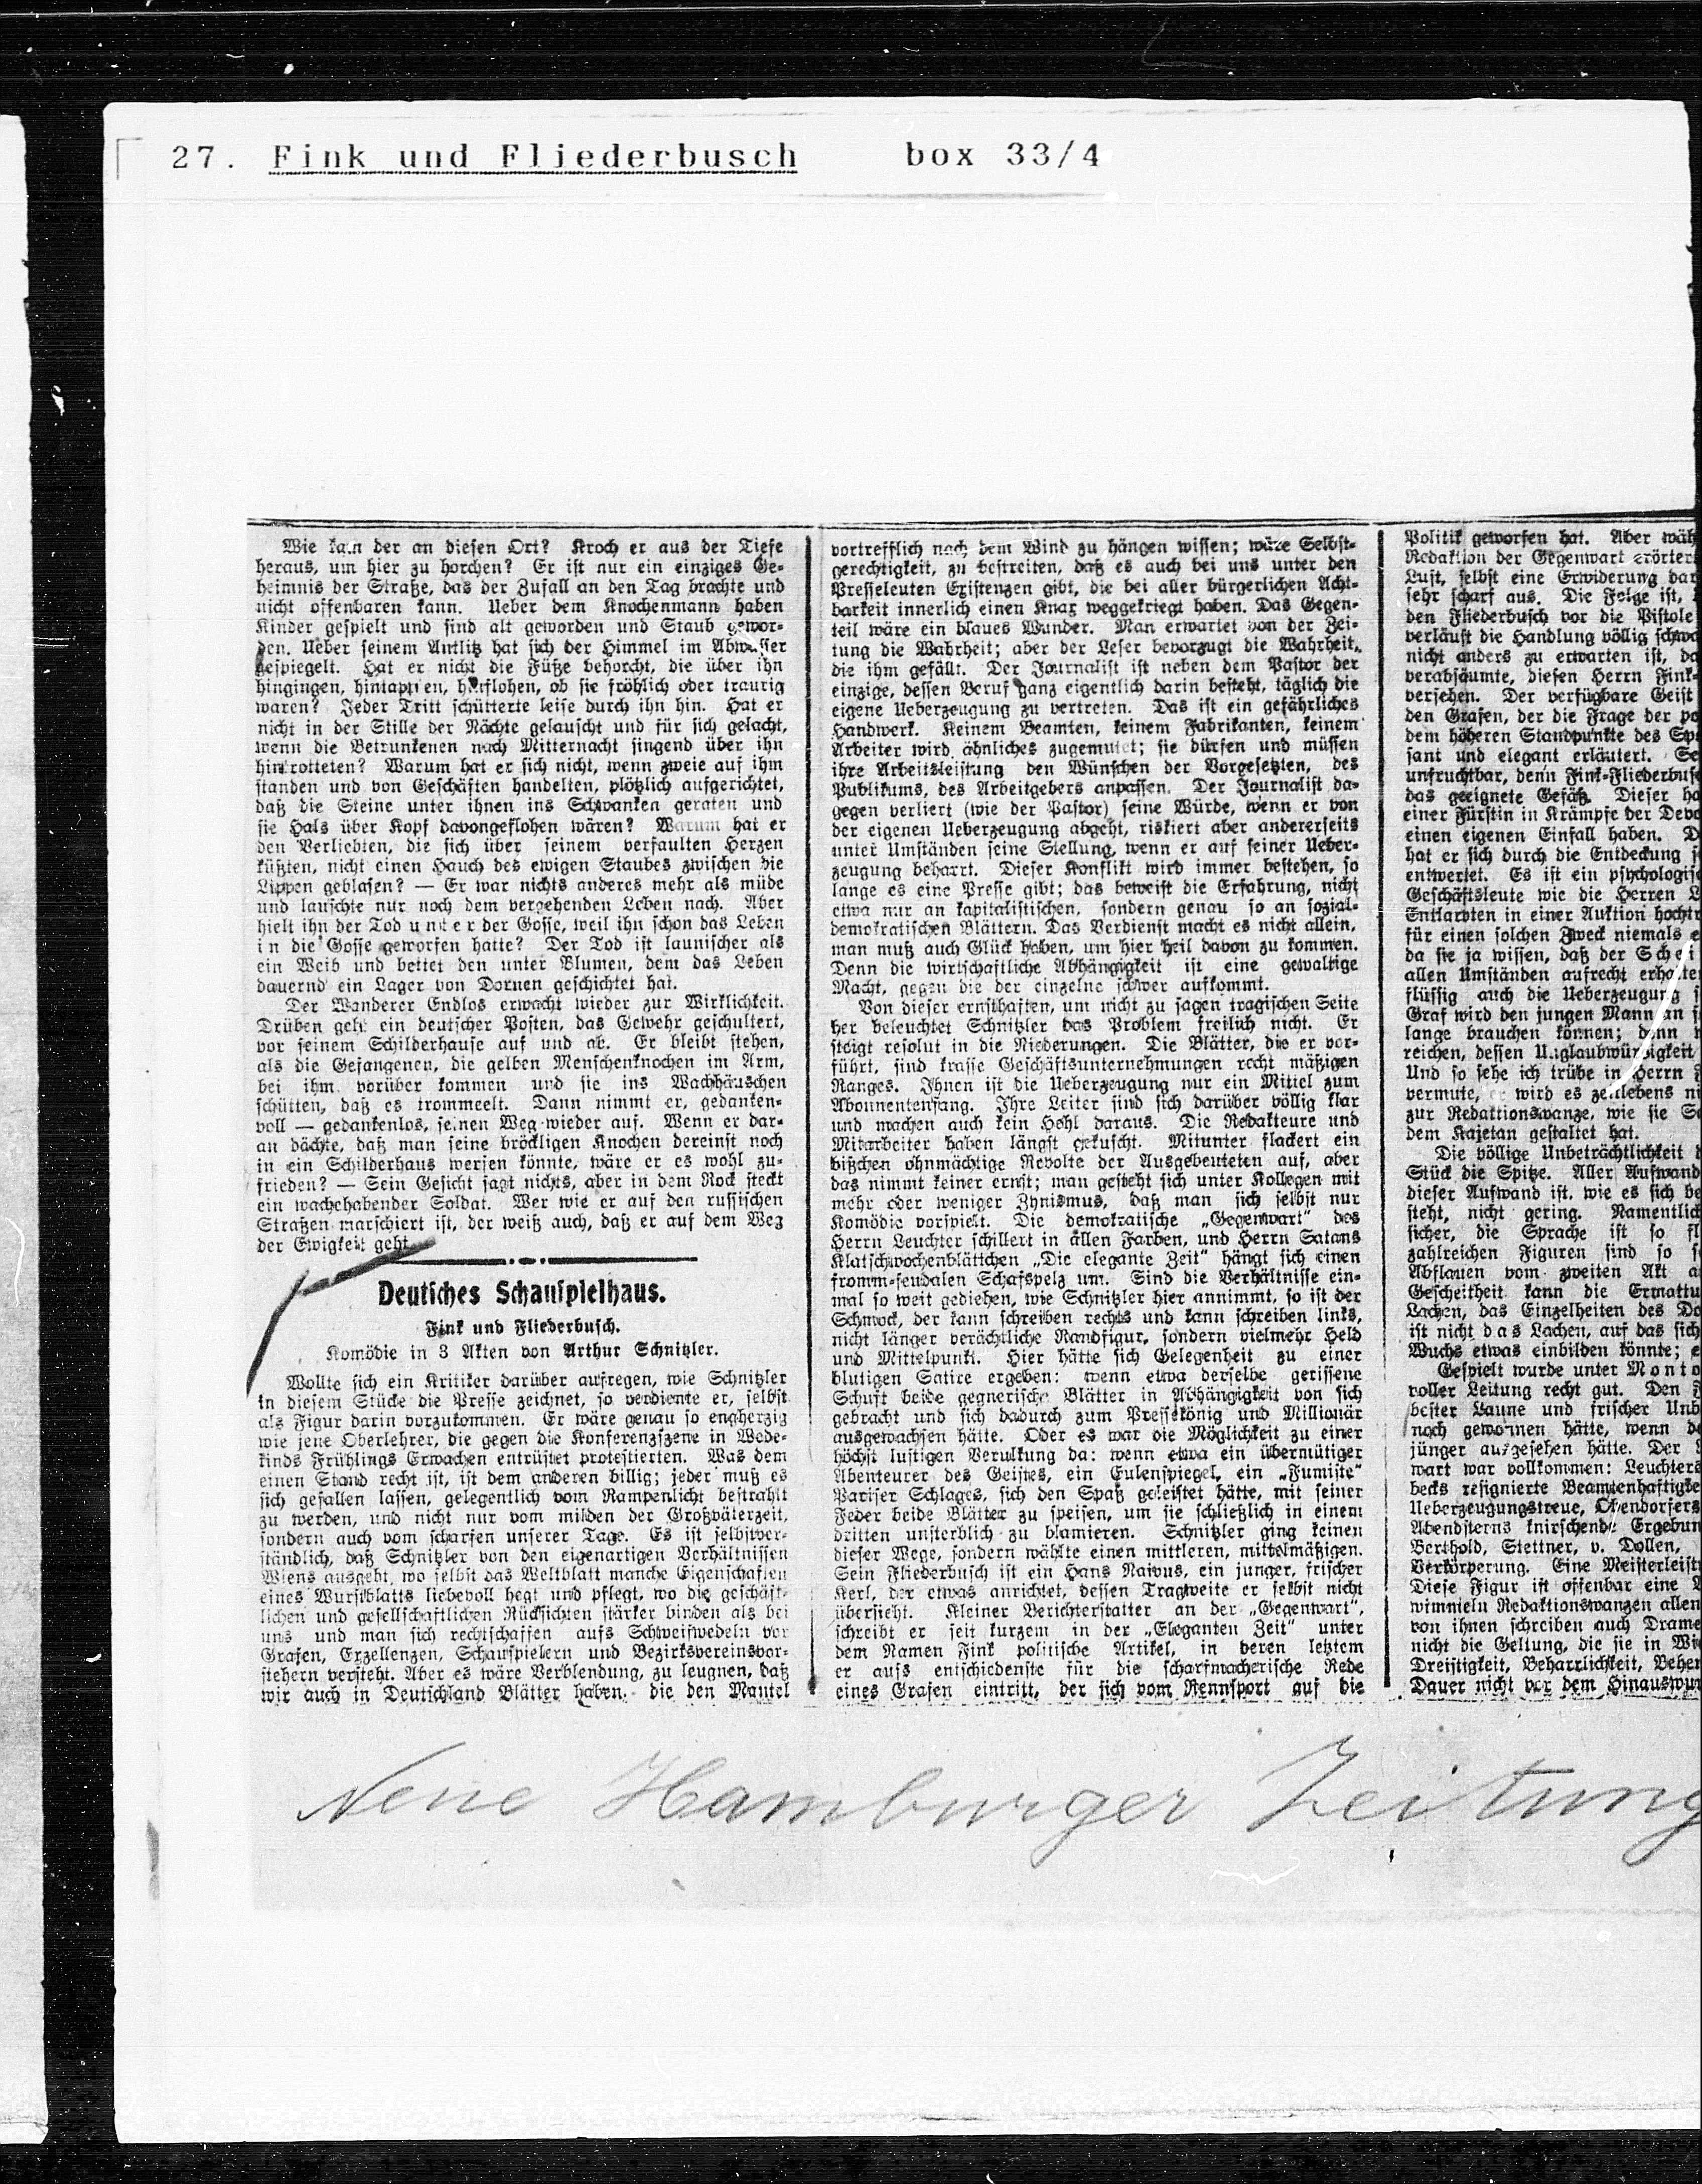 27. Fink und Fliederbusch box 33/4
Wie kam der an diesen Ort? Kroch er aus der Tiefe
heraus, um hier zu horchen? Er ist nur ein einziges Ge-
heimnis der Straße, das der Zufall an den Tag brachte und
nicht offenbaren kann. Ueber dem Knochenmann haben
Kinder gespielt und sind alt geworden und Staub gewor-
den. Ueber seinem Antlitz hat sich der Himmel im Abwasser
gespiegelt. Hat er nicht die Füße behorcht, die über ihn
hingingen, hintappten, hinflohen, ob sie fröhlich oder traurig
waren? Jeder Tritt schütterte leise durch ihn hin. Hat er
nicht in der Stille der Nächte gelauscht und für sich gelacht,
wenn die Betrunkenen nach Mitternacht singend über ihn
hintrotteten? Warum hat er sich nicht, wenn zweie auf ihm
standen und von Geschäften handelten, plötzlich aufgerichtet,
daß die Steine unter ihnen ins Schwanken geraten und
sie Hals über Kopf davongeflohen wären? Warum hat er
den Verliebten, die sich über seinem verfaulten Herzen
küßten, nicht einen Hauch des ewigen Staubes zwischen die
Lippen geblasen? — Er war nichts anderes mehr als müde
und lauschte nur noch dem vergehenden Leben nach. Aber
hielt ihn der Tod unter der Gosse, weil ihn schon das Leben
in die Gosse geworfen hatte? Der Tod ist launischer als
ein Weib und bettet den unter Blumen, dem das Leben
dauernd ein Lager von Dornen geschichtet hat.
Der Wanderer Endlos erwacht wieder zur Wirklichkeit.
Drüben geht ein deutscher Posten, das Gewehr geschultert,
vor seinem Schilderhause auf und ab. Er bleibt stehen,
als die Gefangenen, die gelben Menschenknochen im Arm,
bei ihm vorüber kommen und sie ins Wachhäuschen
schütten, daß es trommeelt. Dann nimmt er, gedanken-
voll — gedankenlos, seinen Weg wieder auf. Wenn er dar-
an dächte, daß man seine bröckligen Knochen dereinst noch
in ein Schilderhaus werfen könnte, wäre er es wohl zu-
frieden? — Sein Gesicht sagt nichts, aber in dem Rock steckt
ein wachehabender Soldat. Wer wie er auf den russischen
Straßen marschiert ist, der weiß auch, daß er auf dem Weg
der Ewigkeit geht.
Deutsches Schauspielhaus.
Fink und Fliederbusch.
Komödie in 3 Akten von Arthur Schnitzler.
Wollte sich ein Kritiker darüber aufregen, wie Schnitzler
in diesem Stücke die Presse zeichnet, so verdiente er, selbst
als Figur darin vorzukommen. Er wäre genau so engherzig
wie jene Oberlehrer, die gegen die Konferenzszene in Wede-
kinds Frühlings Erwachen entrüstet protestierten. Was dem
einen Stand recht ist, ist dem anderen billig; jeder muß es
sich gefallen lassen, gelegentlich vom Rampenlicht bestrahlt
zu werden, und nicht nur vom milden der Großväterzeit,
sondern auch vom scharfen unserer Tage. Es ist selbstver-
ständlich, daß Schnitzler von den eigenartigen Verhältnissen
Wiens ausgeht, wo selbst das Weltblatt manche Eigenschaften
eines Wurstblatts liebevoll hegt und pflegt, wo die geschäft-
lichen und gesellschaftlichen Rücksichten stärker binden als bei
uns und man sich rechtschaffen aufs Schweifwedeln vor
Grafen, Exzellenzen, Schauspielern und Bezirksvereinsvor-
stehern versteht. Aber es wäre Verblendung, zu leugnen, daß
wir auch in Deutschland Blätter haben, die den Mantel
vortrefflich nach dem Wind zu hängen wissen; wäre Selbst-
gerechtigkeit, zu bestreiten, daß es auch bei uns unter den
Presseleuten Existenzen gibt, die bei aller bürgerlichen Acht-
barkeit innerlich einen Knax weggekriegt haben. Das Gegen-
teil wäre ein blaues Wunder. Man erwartet von der Zei-
tung die Wahrheit; aber der Leser bevorzugt die Wahrheit,
die ihm gefällt. Der Journalist ist neben dem Pastor der
einzige, dessen Beruf ganz eigentlich darin besteht, täglich die
eigene Ueberzeugung zu vertreten. Das ist ein gefährliches
Handwerk. Keinem Beamten, keinem Fabrikanten, keinem
Arbeiter wird ähnliches zugemutet; sie dürfen und müssen
ihre Arbeitsleistung den Wünschen der Vorgesetzten, des
Publikums, des Arbeitgebers anpassen. Der Journalist da-
gegen verliert (wie der Pastor) seine Würde, wenn er von
der eigenen Ueberzeugung abgeht, riskiert aber andererseits
unter Umständen seine Stellung, wenn er auf seiner Ueber-
zeugung beharrt. Dieser Konflikt wird immer bestehen, so
lange es eine Presse gibt; das beweist die Erfahrung, nicht
etwa nur an kapitalistischen, sondern genau so an sozial-
demokratischen Blättern. Das Verdienst macht es nicht allein,
man muß auch Glück haben, um hier heil davon zu kommen.
Denn die wirtschaftliche Abhängigkeit ist eine gewaltige
Macht, gegen die der einzelne schwer aufkommt.
Von dieser ernsthaften, um nicht zu sagen tragischen Seite
her beleuchtet Schnitzler das Problem freilich nicht. Er
steigt resolut in die Niederungen. Die Blätter, die er vor-
führt, sind krasse Geschäftsunternehmungen recht mäßigen
Ranges. Ihnen ist die Ueberzeugung nur ein Mittel zum
Abonnentenfang. Ihre Leiter sind sich darüber völlig klar
und machen auch kein Hohl daraus. Die Redakteure und
Mitarbeiter haben längst gekuscht. Mitunter flackert ein
bißchen ohnmächtige Revolte der Ausgebeuteten auf, aber
das nimmt keiner ernst; man gesteht sich unter Kollegen mit
mehr oder weniger Zynismus, daß man sich selbst nur
Komödie vorspielt. Die demokratische „Gegenwart“ des
Herrn Leuchter schillert in allen Farben, und Herrn Satans
Klatschwochenblättchen „Die elegante Zeit“ hängt sich einen
fromm-feudalen Schafspelz um. Sind die Verhältnisse ein-
mal so weit gediehen, wie Schnitzler hier annimmt, so ist der
Schmock, der kann schreiben rechts und kann schreiben links,
nicht länger verächtliche Randfigur, sondern vielmehr Held
und Mittelpunkt. Hier hätte sich Gelegenheit zu einer
blutigen Satire ergeben: wenn etwa derselbe gerissene
Schuft beide gegnerische Blätter in Abhängigkeit von sich
gebracht und sich dadurch zum Pressekönig und Millionär
ausgewachsen hätte. Oder es war die Möglichkeit zu einer
höchst lustigen Verulkung da: wenn etwa ein übermütiger
Abenteurer des Geistes, ein Eulenspiegel, ein „Fumiste“
Pariser Schlages, sich den Spaß geleistet hätte, mit seiner
Feder beide Blätter zu speisen, um sie schließlich in einem
dritten unsterblich zu blamieren. Schnitzler ging keinen
dieser Wege, sondern wählte einen mittleren, mittelmäßigen.
Sein Fliederbusch ist ein Hans Naivus, ein junger, frischer
Kerl, der etwas anrichtet, dessen Tragweite er selbst nicht
übersieht. Kleiner Berichterstatter an der „Gegenwart“,
schreibt er seit kurzem in der „Eleganten Zeit“ unter
dem Namen Fink politische Artikel, in deren letztem
er aufs entschiedenste für die scharfmacherische Rede
eines Grafen eintritt, der sich vom Rennsport auf die
Politik geworfen hat. Aber wäh
Redaktion der Gegenwart erörter
Lust, selbst eine Erwiderung dar
sehr scharf aus. Die Folge ist,
den Fliederbusch vor die Pistole
verläuft die Handlung völlig schwa
nicht anders zu erwarten ist, da
verabsäumte, diesen Herrn Fink-
versehen. Der verfügbare Geist
den Grafen, der die Frage der po
dem höheren Standpunkte des Sp
sant und elegant erläutert. Se
unfruchtbar, denn Fink-Fliederbus
das geeignete Gefäß. Dieser ha
einer Fürstin in Krämpfe der Devo
einen eigenen Einfall haben. D
hat er sich durch die Entdeckung s
entwertet. Es ist ein psychologis
Geschäftsleute wie die Herren L
Entlarvten in einer Auktion hocht
für einen solchen Zweck niemals e
da sie ja wissen, daß der Schei
allen Umständen aufrecht erhalte
flüssig auch die Ueberzeugung s
Graf wird den jungen Mann an s
lange brauchen können; denn
reichen, dessen Unglaubwürdigkeit
Und so sehe ich trübe in Herrn
vermute, er wird es zeitlebens ni
zur Redaktionswanze, wie sie S
dem Kajetan gestaltet hat.
Die völlige Unbeträchtlichkeit
Stück die Spitze. Aller Aufwand
dieser Aufwand ist, wie es sich be
steht, nicht gering. Namentlich
sicher, die Sprache ist so fl
zahlreichen Figuren sind so s
Abflauen vom zweiten Akt a
Gescheitheit kann die Ermattu
Lachen, das Einzelheiten des Do
ist nicht das Lachen, auf das sich
Wuchs etwas einbilden könnte; e
Gespielt wurde unter Monto
voller Leitung recht gut. Den F
bester Laune und frischer Unb
noch gewonnen hätte, wenn de
jünger ausgesehen hätte. Der
wart war vollkommen: Leuchters
becks resignierte Beamtenhaftigke
Ueberzeugungstreue, Obendorfers
Abendsterns knirschende Ergebun
Berthold, Stettner, v. Dollen,
Verkörperung. Eine Meisterleist
Diese Figur ist offenbar eine
wimmeln Redaktionswanzen allen
von ihnen schreiben auch Drame
nicht die Geltung, die sie in Wi
Dreistigkeit, Beharrlichkeit, Behen
Dauer nicht vor dem Hinauswur
Neue Hamburger Zeitung